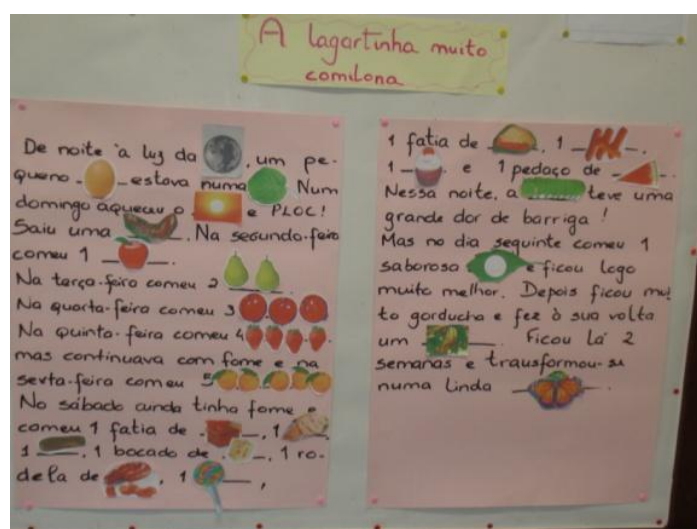 A lagartinha muito
comilona
De noite à luz da , um pe-
queno estava numa . Num
domingo aqueceu o e PLOC!
Saiu uma . Na segunda-feira
comeu 1 .
Na terça-feira comeu 2
Na quarta-feira comeu 3
Na quinta-feira comeu 4 .
mas continuava com fome e na
sexta-feira comeu 5
No sábado ainda tinha fome e
comeu 1 fatia de , 1 ,
1 , 1 bocado de , 1 ro-
dela de , 1 ,
1 fatia de , 1 .
1 e 1 pedaço de .
Nessa noite, a teve uma
grande dor de barriga !
Mas no dia seguinte comeu 1
saborosa e ficou logo
muito melhor. Depois ficou mui
to gorducha e fez à sua volta
um . Ficou lá 2
semanas e transformou-se
numa linda .